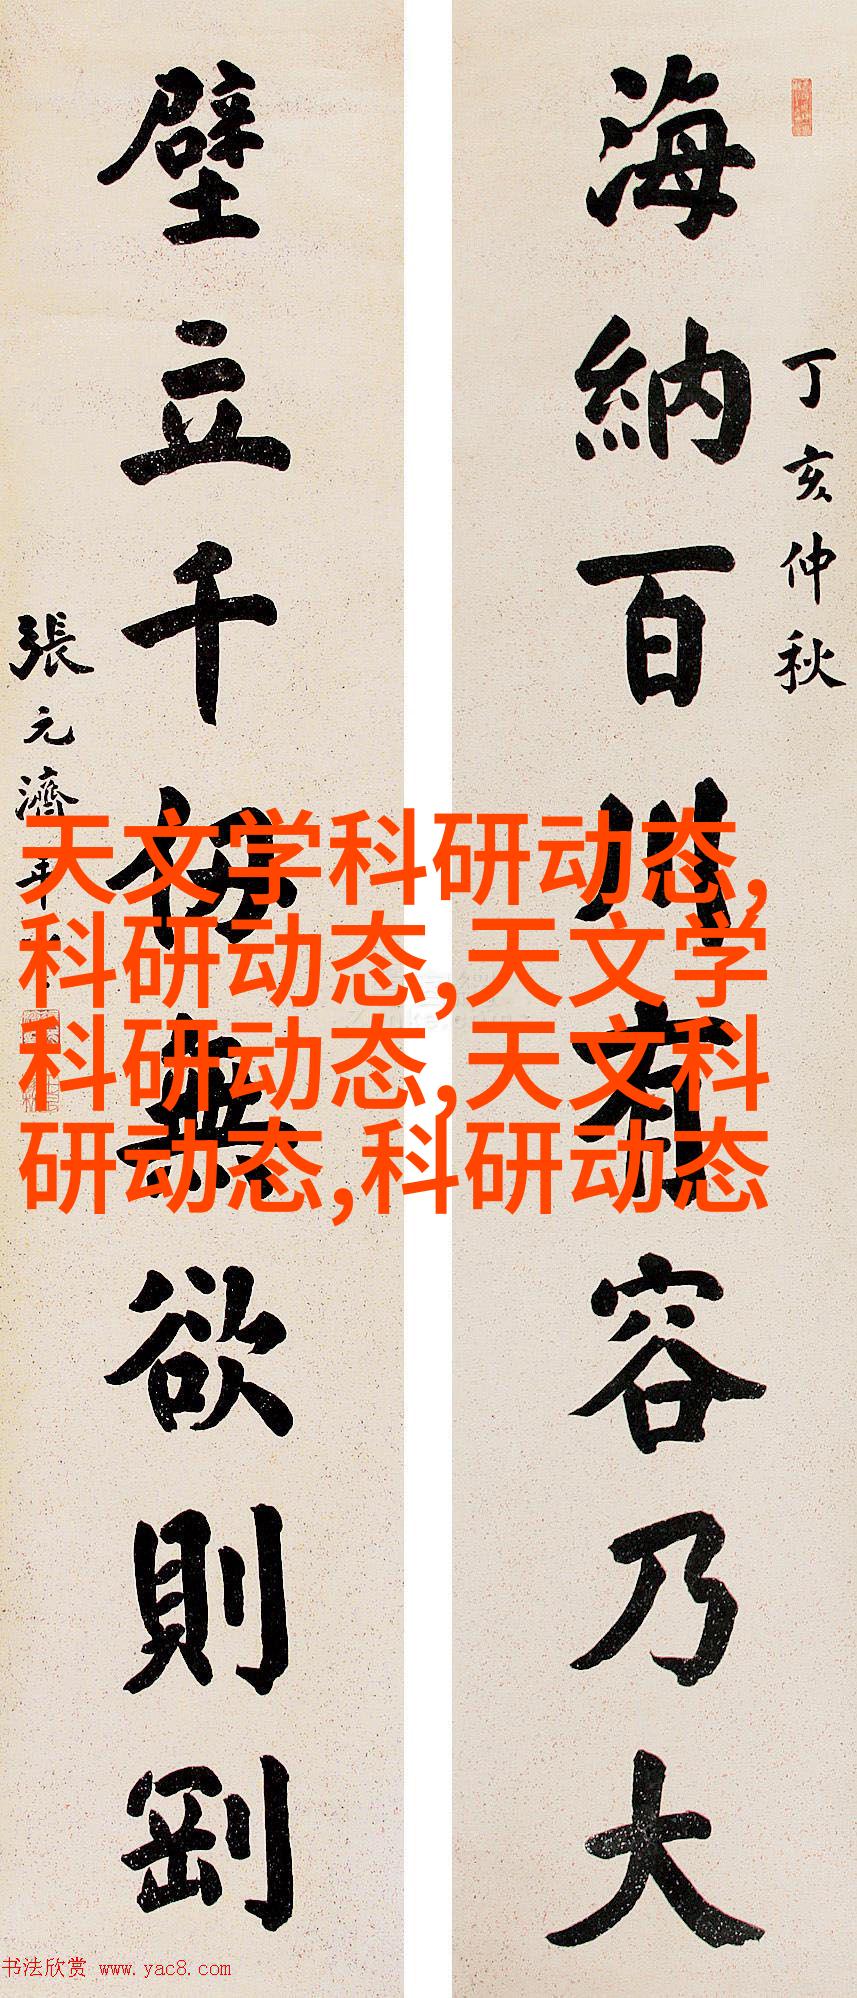 海納百川有容乃大
丁亥仲秋
壁立千仞無欲則剛
張元濟
天文学科研动态,
科研动态,天文学
科研动态,天文科
研动态,科研动态
书法欣赏 www.yac8.com